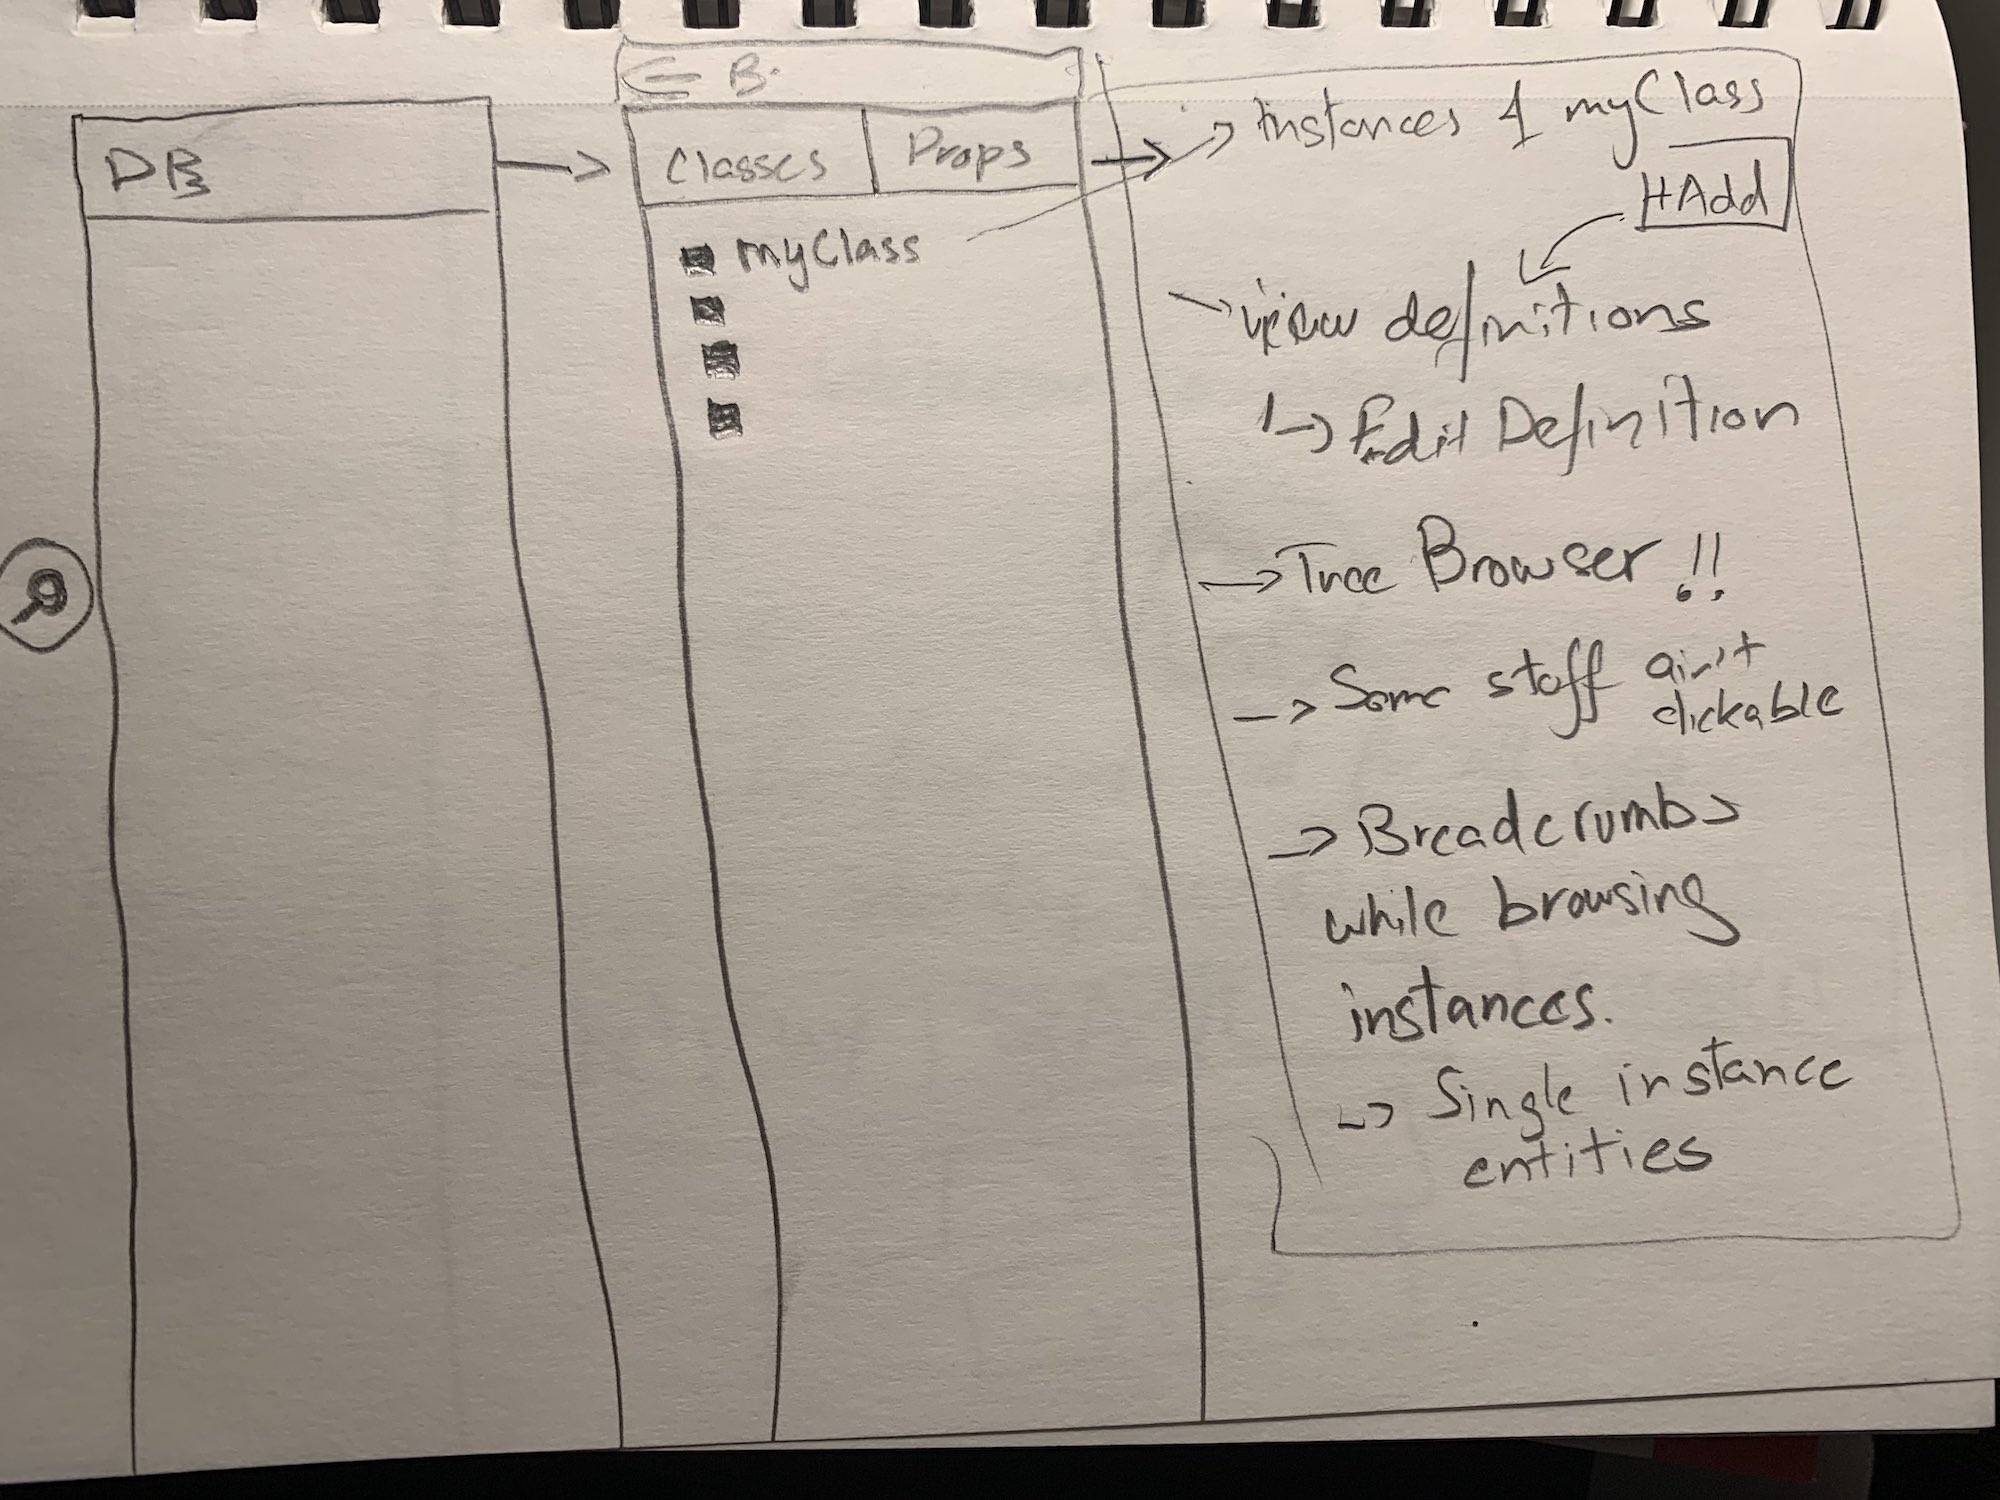 ← B.
DB
Classes | Props
myClass
→ Instances of myClass
+Add
→ view definitions
↳ Edit Definition
→ Tree Browser !!
→ Some stuff ain't
clickable
→ Breadcrumbs
while browsing
instances.
↳ Single instance
entities